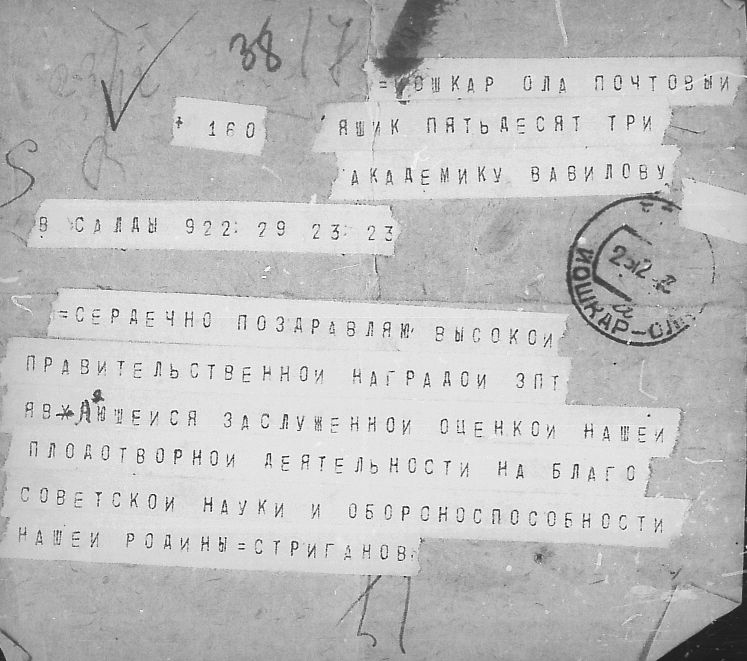 38 17
=ИОШКАР ОЛА ПОЧТОВЫИ
+ 160 ЯШИК ПЯТЬДЕСЯТ ТРИ
АКАДЕМИКУ ВАВИЛОВУ
В САЛДЫ 922: 29 23: 23
ЙОШКАР-ОЛА
=СЕРДЕЧНО ПОЗДРАВЛЯЮ ВЫСОКОИ
ПРАВИТЕЛЬСТВЕННОИ НАГРАДОИ ЗПТ
ЯВЛЯЮШЕИСЯ ЗАСЛУЖЕННОИ ОЦЕНКОИ НАШЕИ
ПЛОДОТВОРНОИ ДЕЯТЕЛЬНОСТИ НА БЛАГО
СОВЕТСКОИ НАУКИ И ОБОРОНОСПОСОБНОСТИ
НАШЕИ РОДИНЫ=СТРИГАНОВ